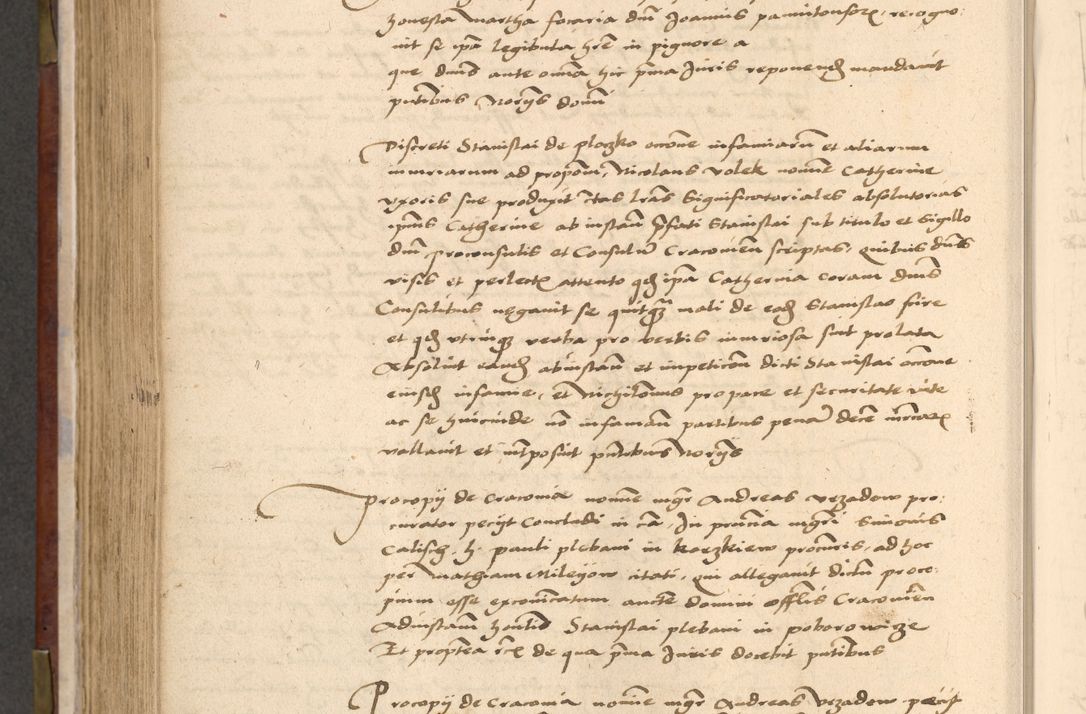 honesta Martha focaria dni Joannis pannitonsoris, recogno-
uit se ipa legibula hre in pignore a
que dnus ante omnia hic pma Juris reponend mandauit
pntibus Norijs domi
Discreti Stanislai de ploczko occone infamiarum et aliarum
iniuriarum ad propoin, Nicolaus Volek nomine Catherine
vxoris sue produxit ctas lras significatoriales absolutorias
ipius Catherine ab instan pfati Stanislai sub titulo et Sigillo
dni proconsulis et Consulum Cracouien scriptas, quibus dnus
visis et perlectis attento qd ipa Catherina coram dnis
Consulibus negauit se quitqz mali de eodem Stanislao scire
et qd vtrinqz verba pro verbis iniuriosa sunt prolata
Absoluit eandem ab instan et impeticone dicti Stanislai occone
eiusdem infamie, et Nichilominus pro pace et securitate vite
ac se huicinde no infamanda partibus penam decem marcarum
vallauit et interposuit pntibus Norijs
Procopij de Craconia nomine mgr Andreas vrzadow pro-
curator pecijt Concludi in ca, In pncia mgri Simonis
Calisch, h. pauli plebani in korzkiew procuris, ad hoc
per Mathiam Mileyow citati, qui allegauit dictum proco-
pium esse excoicatum aucte domini offlis Cracouien
Ad instam honlis Stanislai plebani in poborowicze
Et proptea rcs de qua pma Juris docebit pntibus
Procopij de Craconia nomine mgr Andreas vrzadow pecijt